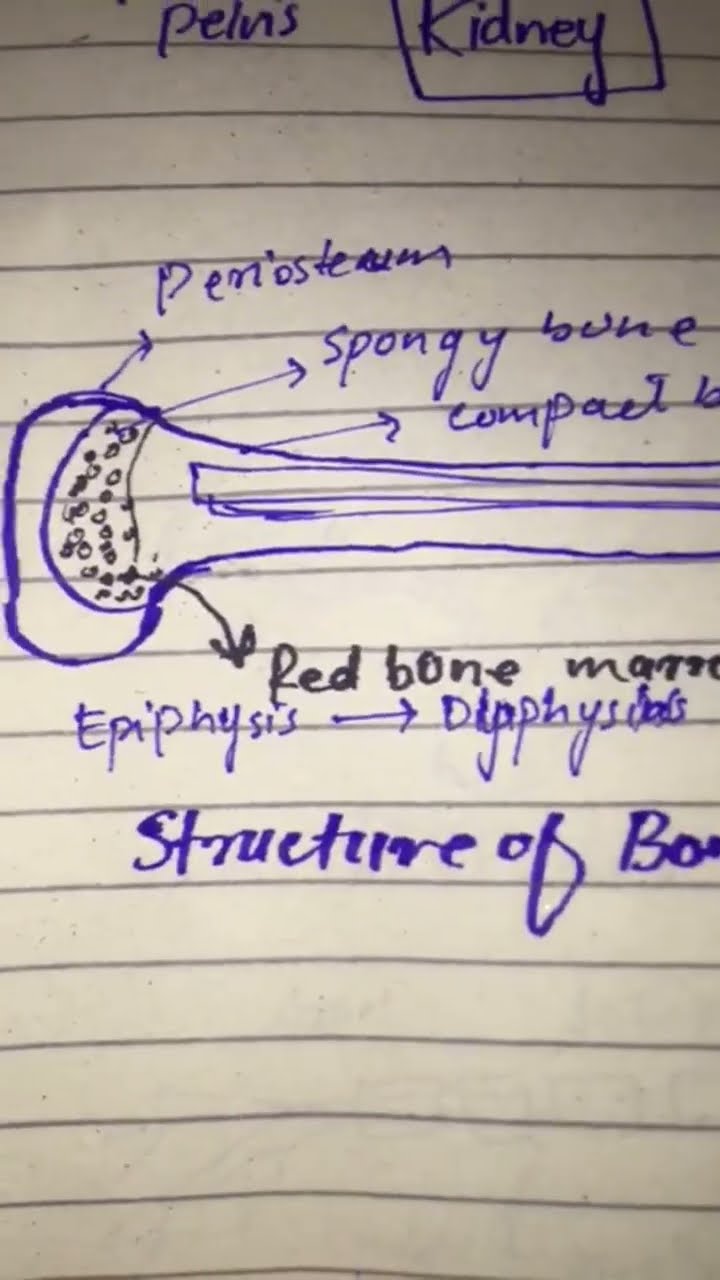 pelvis
Kidney
periosteum
spongy bone
compact b
Red bone marro
Epiphysis → Diaphysis
Structure of Bo